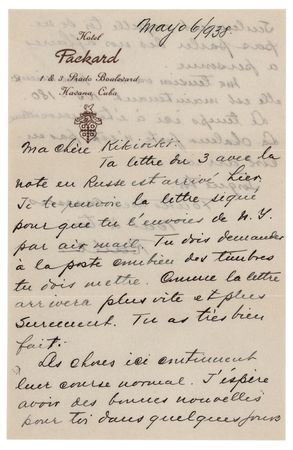 Mayo 6/938.
Hotel
Packard
1 & 3 Prado Boulevard
Havana, Cuba
Ma chère Kikirikí:
Ta lettre du 3 avec la
note en Russe est arrivé hier.
Je te renvoie la lettre signé
pour que tu l'envoies de N.Y.
par air mail. Tu dois demander
à la poste combien des timbres
tu dois mettre. Comme la lettre
arrivera plus vite et plus
surement. Tu as très bien
fait.
Les choses ici continuent
leur course normal. J'espère
avoir des bonnes nouvelles
pour toi dans quelques jours